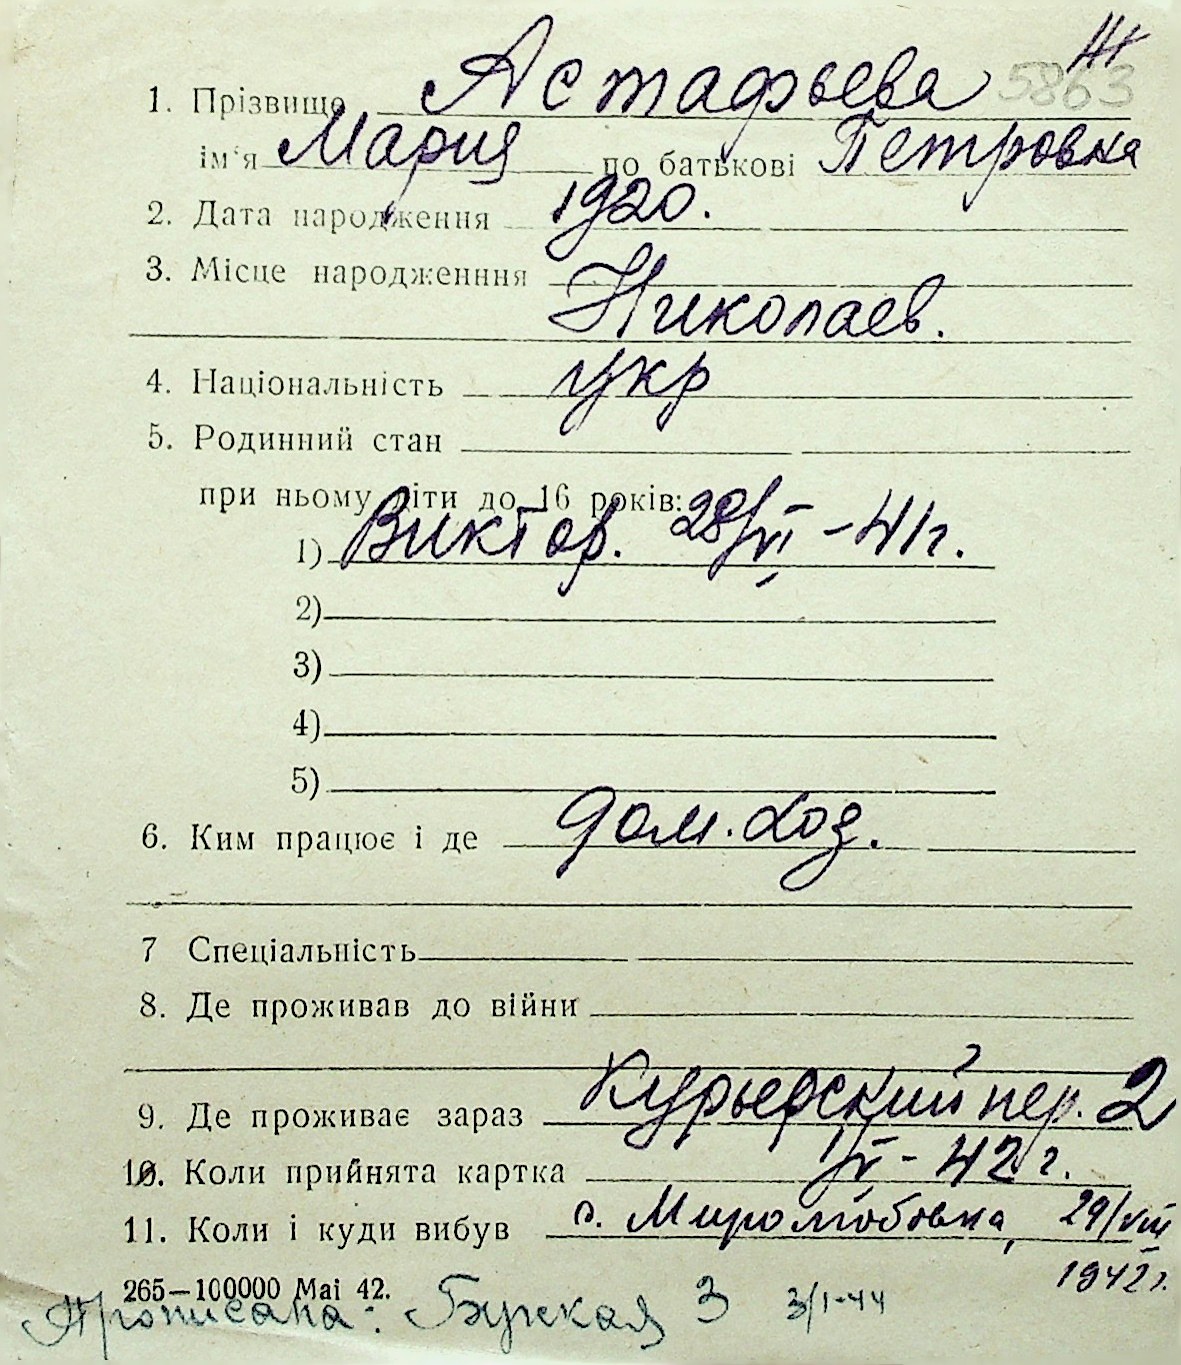 1. Прізвище Астафьева 5863
ім'я Мария по батькові Петровна
2. Дата народження 1920.
3. Місце народженння
Николаев.
4. Національність укр
5. Родинний стан
при ньому діти до 16 років:
1) Виктор. 28/VI - 41 г.
2)
3)
4)
5)
6. Ким працює і де дом. хоз.
7 Спеціальність
8. Де проживав до війни
9. Де проживає зараз Курьерский пер. 2
10. Коли прийнята картка 1/VI - 42 г.
11. Коли і куди вибув с. Миролюбовка, 29/VIII
1942 г.
265—100000 Mai 42.
Прописана: Бугская 3 3/I-44